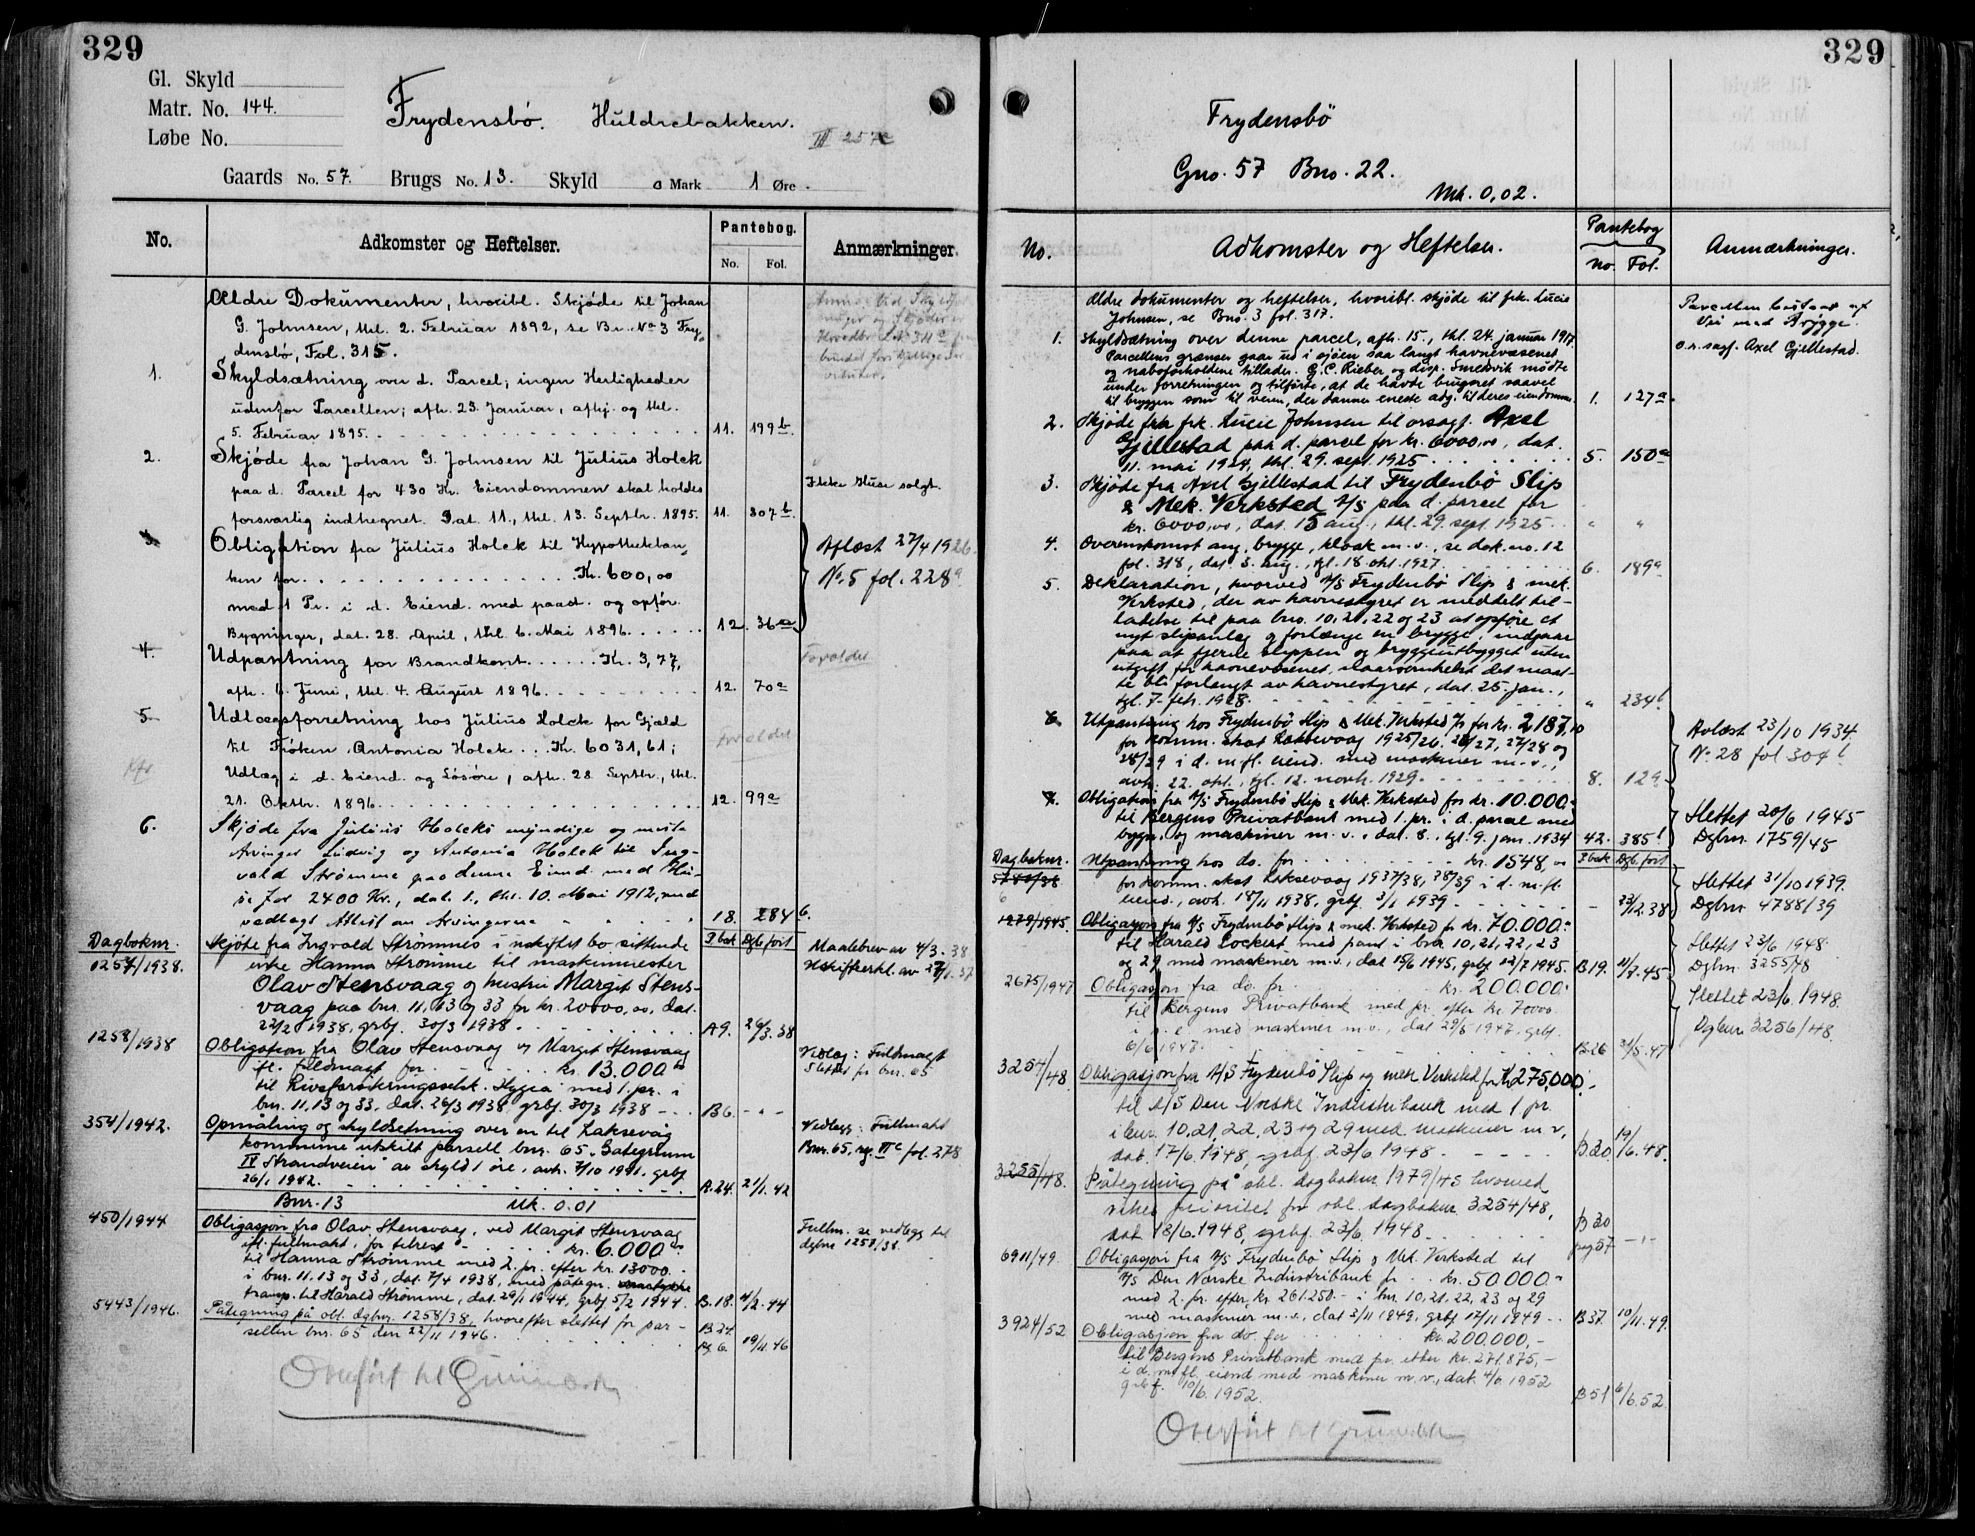 329
Gl. Skyld
Matr. No. 144.
Løbe No.
Frydensbö. Huldrebakken.
Gaards No. 57. Brugs No. 13. Skyld 0 Mark 1 Øre.
No.
Adkomster og Heftelser.
Pantebog.
No. Fol.
Anmærkninger
Ældre Dokumenter, hvoribl. Skjøde til Johan
G. Johnsen, thl. 2. Februar 1892, se Br. No 3 Fry
densbö, Fol. 315.
1. Skyldsætning over d. Parcel; ingen Herligheder
udenfor Parcellen; afh. 23. Januar, afhj. og thl.
5. Februar 1895. 11. 199 b.
2. Skjöde fra Johan G. Johnsen til Julius Holck
paa d. Parcel for 430 Kr. Eiendommen skal holdes
forsvarlig indhegnet. Dat. 11., thl. 13. Septbr. 1895. 11. 307 b.
Ikke Huse solgt.
3. Obligation fra Julius Holck til Hypothekban
ken for Kr. 600,00
med 1 Pr. i d. Eiend. med paast. og opför.
Bygninger, dat. 28. April, thl. 6. Mai 1896. 12. 36 a
Aflæst 27/4 1926
No 5 fol. 228 a
4. Udpantning for Brandkont. Kr. 3,77,
afh. 6. Juni, thl. 4. August 1896. 12. 70 a
Forældet
5. Udlægsforretning hos Julius Holck for Gjæld
til Fröken Antonia Holck Kr. 6031,61;
Udlæg i d. Eiend. og Lösöre, afh. 28. Septbr., thl.
21. Oktbr. 1896. 12. 99 a
forældet
6. Skjøde fra Julius Holcks myndige og
Arvinger Ludvig og Antonia Holck til Ing-
vald Strømme paa denne Eiend. med Hu-
se for 2400 Kr., dat. 1., thl. 10. Mai 1912, med
vedlagt Attest om Arvingerne 18. 284 b.
Dagboknr. P.bok Dgb.ført
1257/1938. Skjöte fra Ingvald Strømmes i uskiftet bo sittende
enke Hanna Strømme til maskinmester
Olav Stensvaag og hustru Margit Stens-
vaag paa bnr. 11, 13 og 33 for kr. 20000,00, dat.
22/2 1938, grbf. 30/3 1938. A9. 26/3.38
Maalebrev av 4/3.38
Uskifteerkl. av
1258/1938 Obligation fra Olav Stensvaag og Margit Stensvaag
ifl. fuldmagt for kr. 13.000
til Livsforsikringsselsk. Hygea med 1. pr. i
bnr. 11, 13 og 33, dat. 26/3 1938, grbf. 30/3 1938 B6.
Vedlag: Fuldmagt
Slettet for bnr. 65
354/1942. Opmåling og skyldsetning over en til Laksevåg
kommune utskilt parsell bnr. 65 "Gategrunn
IV Strandveien" av skyld 1 øre, avh. 7/10 1941, grbf
26/1 1942. A.24. 21/1.42
Vedlegg: Fullmakt
Bnr. 65, reg. fol. 278
Bnr. 13 Mk. 0.01
450/1944 Obligasjon fra Olav Stensvaag, ved Margit Stensvaag
ifl. fullmakt, for tilrest kr. 6.000
til Hanna Strømme med 2. pr. efter kr. 13000
i bnr. 11, 13 og 33, dat. 7/4 1938, med påtegn.
transp. til Harald Strømme, dat. 29/1 1944, grbf 5/2 1944. B.18. 4/2.44
Fullm. se vedlegg til
dgbnr 1258/38.
5443/1946. Påtegning på obl. dgbnr. 1258/38, hvorefter slettet for par-
sellen bnr. 65 den 22/11 1946. B.24. pg. 6. 19/11.46
Overført til Grunnbok

329
Frydensbö
Gno. 57 Bno. 22.
Mk. 0,02.
No.
Adkomster og Heftelser.
Pantebog
no. Fol.
Anmærkninger.
Ældre dokumenter og heftelser, hvoribl. skjöde til frk. Lucie
Johnsen, se Bno. 3 fol. 317.
Parcellen bestaar af
Vei med Brygge.
o.r.sagf. Axel Gjellestad.
1. Skyldsætning over denne parcel, afh. 15., thl. 24. januar 1917.
Parcellens grænser gaar ud i sjöen saa langt havnevæsenet
og naboforholdene tillader. G.C. Rieber og disp. Smedsvik mödte
under forretningen og tilførte, at de havde brugsret saavel
til bryggen som til veien, der danner eneste adg. til deres eiendomme. 1. 127 a.
2. Skjöde fra frk. Lucie Johnsen til orsagf. Axel
Gjellestad paa d. parcel for kr. 6000,00, dat.
11. mai 1924, thl. 29. sept. 1925 5. 150 a
3. Skjöde fra Axel Gjellestad til Frydenbö Slip
& Mek. Verksted A/S paa d. parcel for
kr. 6000,00, dat. 15 aug., thl. 29. sept. 1925. " "
4. Overenskomst ang. brygge, kloak m.v., se dok. no. 12
fol. 318, dat. 3. aug., tgl. 18. okt. 1927. 6. 189 a
5. Deklaration, hvorved A/S Frydenbö Slip & mek.
Verksted, der av havnestyret er meddelt til-
ladelse til paa bno. 10, 21, 22 og 23 at opföre et
nyt slipanlæg og forlænge en brygge, indgaar
paa at fjerne slippen og bryggeutbygget uten
utgift for havnevæsenet, naarsomhelst det maat-
te bli forlangt av havnestyret, dat. 25. jan.,
tgl. 7. febr. 1928. " 234 b
6. Utpantning hos Frydenbö Slip & Mek. Verksted A/S for kr. 2187,10
for komm. skat Laksevaag 1925/26, 26/27, 27/28 og
28/29 i d. m. fl. eiend. med maskiner m.v.,
avh. 22. okt., tgl. 12. novb. 1929. 8. 129
Avlæst 23/10 1934
No 28 fol 304 b
7. Obligation fra A/S Frydenbö Slip & Mek. Verksted for kr. 10.000.-
til Bergens Privatbank med 1. pr. i d. parcel med
bygn. og maskiner m.v., dat. 8., tgl. 9. jan. 1934 42. 385 b
Slettet 20/6 1945
Dgbnr. 1759/45
Dagboknr. P.bok Dgb.ført
Utpantning hos do. for kr. 1548,00
for komm. skat Laksevaag 1937/38, 38/39 i d. m. fl.
eiend., avh. 18/11 1938, grbf. 3/1 1939 - 23/12.38
Slettet 31/10 1939.
Dgbnr 4788/39
1979/1945. Obligasjon fra A/S Frydenbö Slip & mek. Verksted for kr. 70.000.-
til Harald Lockert, med pant i bnr 10, 21, 22, 23
og 29 med maskiner m.v., dat 15/6 1945, grbf 12/7 1945. B.19. 11/7.45
Slettet 23/6 1948.
Dgbnr. 3255/48
2675/1947 Obligasjon fra do. for kr. 200.000:-
til Bergens Privatbank med pr. efter kr. 70000
med maskiner m.v., dat 29/5 1947, grbf.
6/6 1947. B.26 31/5.47
Slettet 23/6. 1948
Dgbnr 3256/48.
3254/48 Obligasjon fra A/S Frydenbö Slip og mek Verksted for Kr 275,000.-
til A/S Den Norske Industribank med 1 pr.
i bnr. 10, 21, 22, 23 og 29 med maskiner m.v,
dat. 17/6 1948, grbf. 23/6 1948 B.30. 19/6.48.
3255/48. Påtegning på obl. dagboknr. 1979/45 hvorved
vikes prioritet for obl. dagboknr. 3254/48,
dat 18/6.1948, grbf. 23/6 1948. B 30 pg 57
6911/49 Obligasjon fra A/S Frydenbö Slip & Mek. Verksted til
A/S Den Norske Industribank for kr. 50.000.-
med 2. pr. efter kr. 261.250.- i bnr 10, 21, 22, 23 og 29
med maskiner m.v., dat 3/11 1949, grbf 17/11 1949 B37. 10/11.49.
3924/52 Obligasjon fra do. for kr. 200.000,-
til Bergens Privatbank med pr. etter kr. 271.875,-
i d. m. fl. eiend med maskiner m.v., dat. 4/6 1952
grbf. 10/6. 1952. B51 6/6.52
Overført til Grunnbok